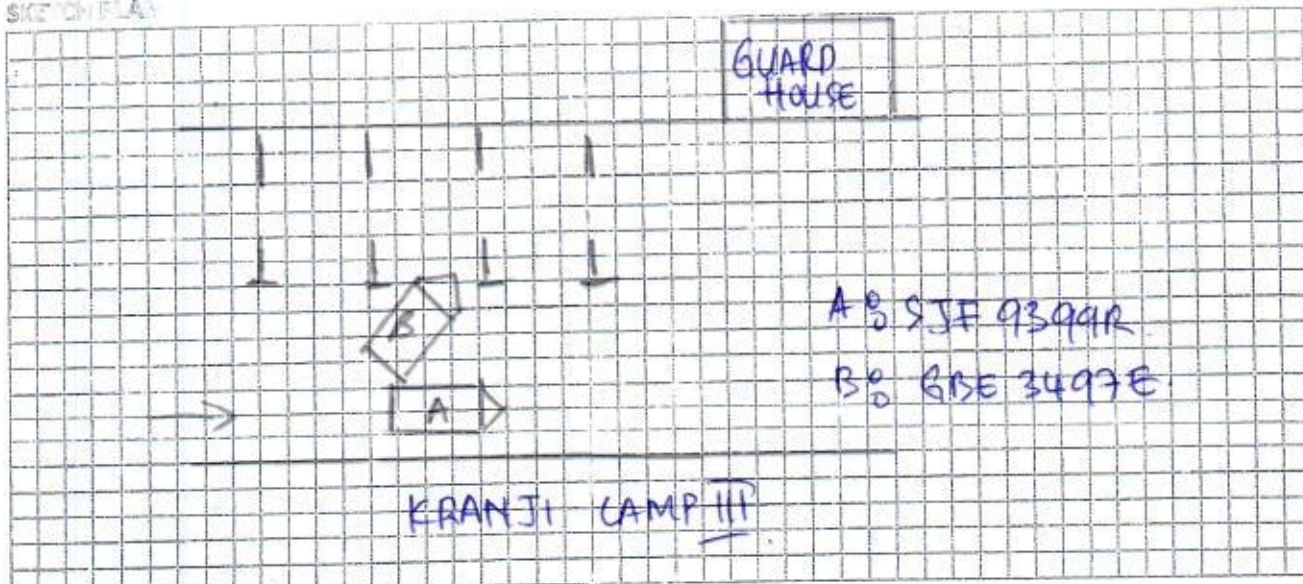 SKETCH PLAN
GUARD
HOUSE
B
A
A: SJF 9399R
B: GBE 3497E
KRANJI CAMP III